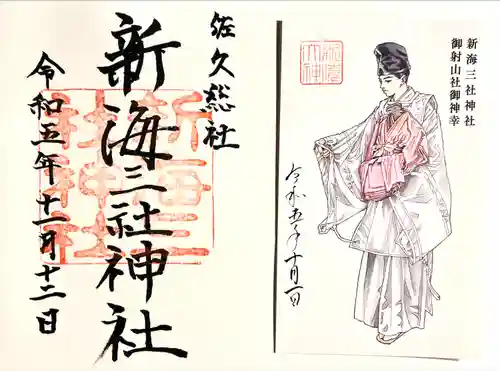 佐久総社
新海三社神社
令和五年十一月十二日
新海三社神社
新海三社神社
御射山社御神幸
新海
大神
令和五年十一月一日